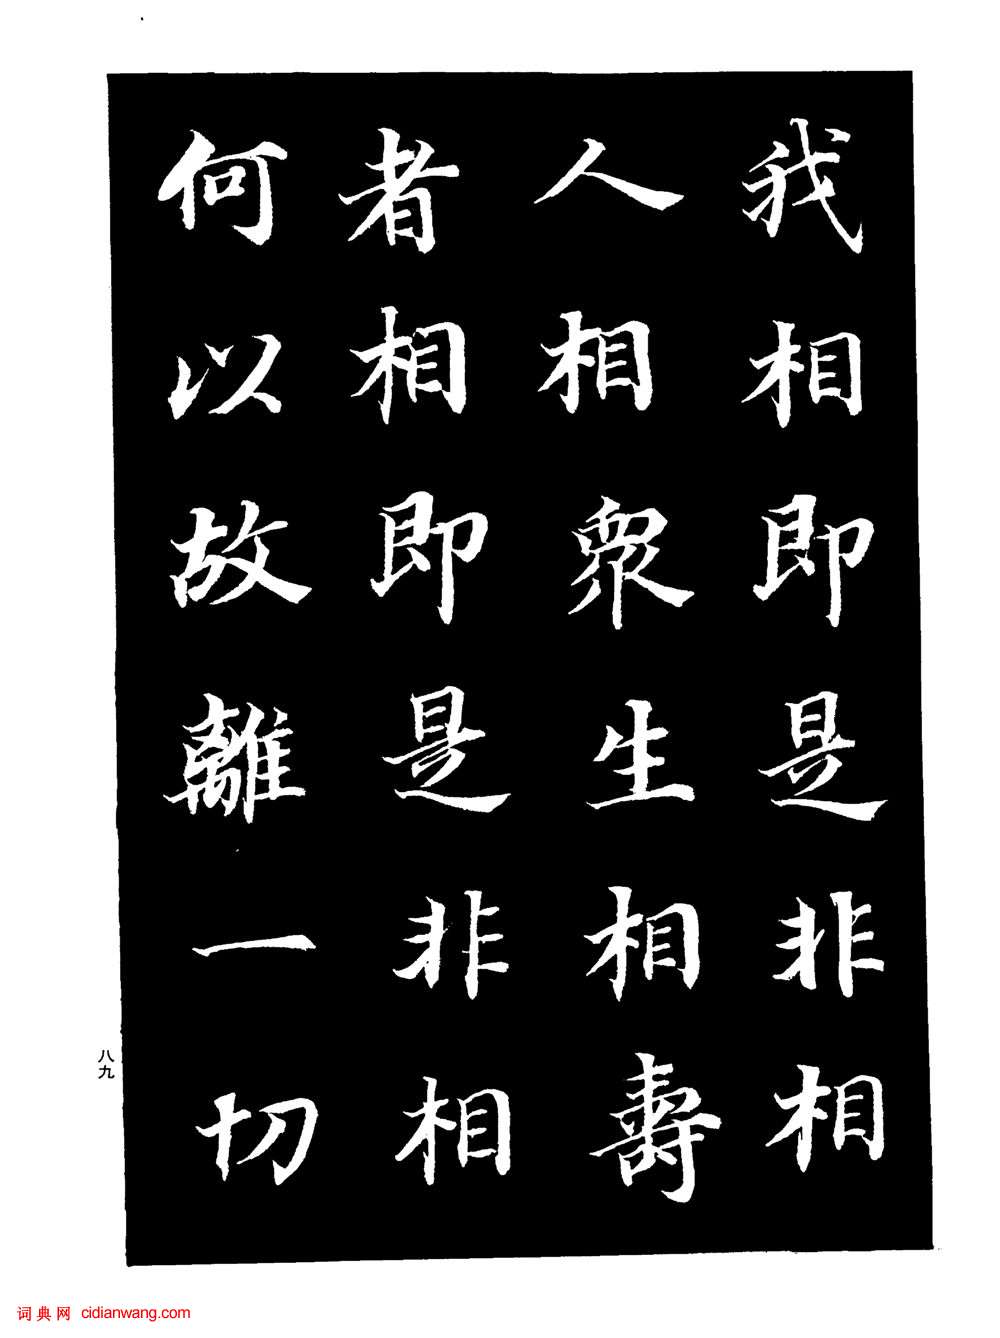 我相即是非相
人相眾生相壽
者相即是非相
何以故離一切
八九
词典网 cidianwang.com